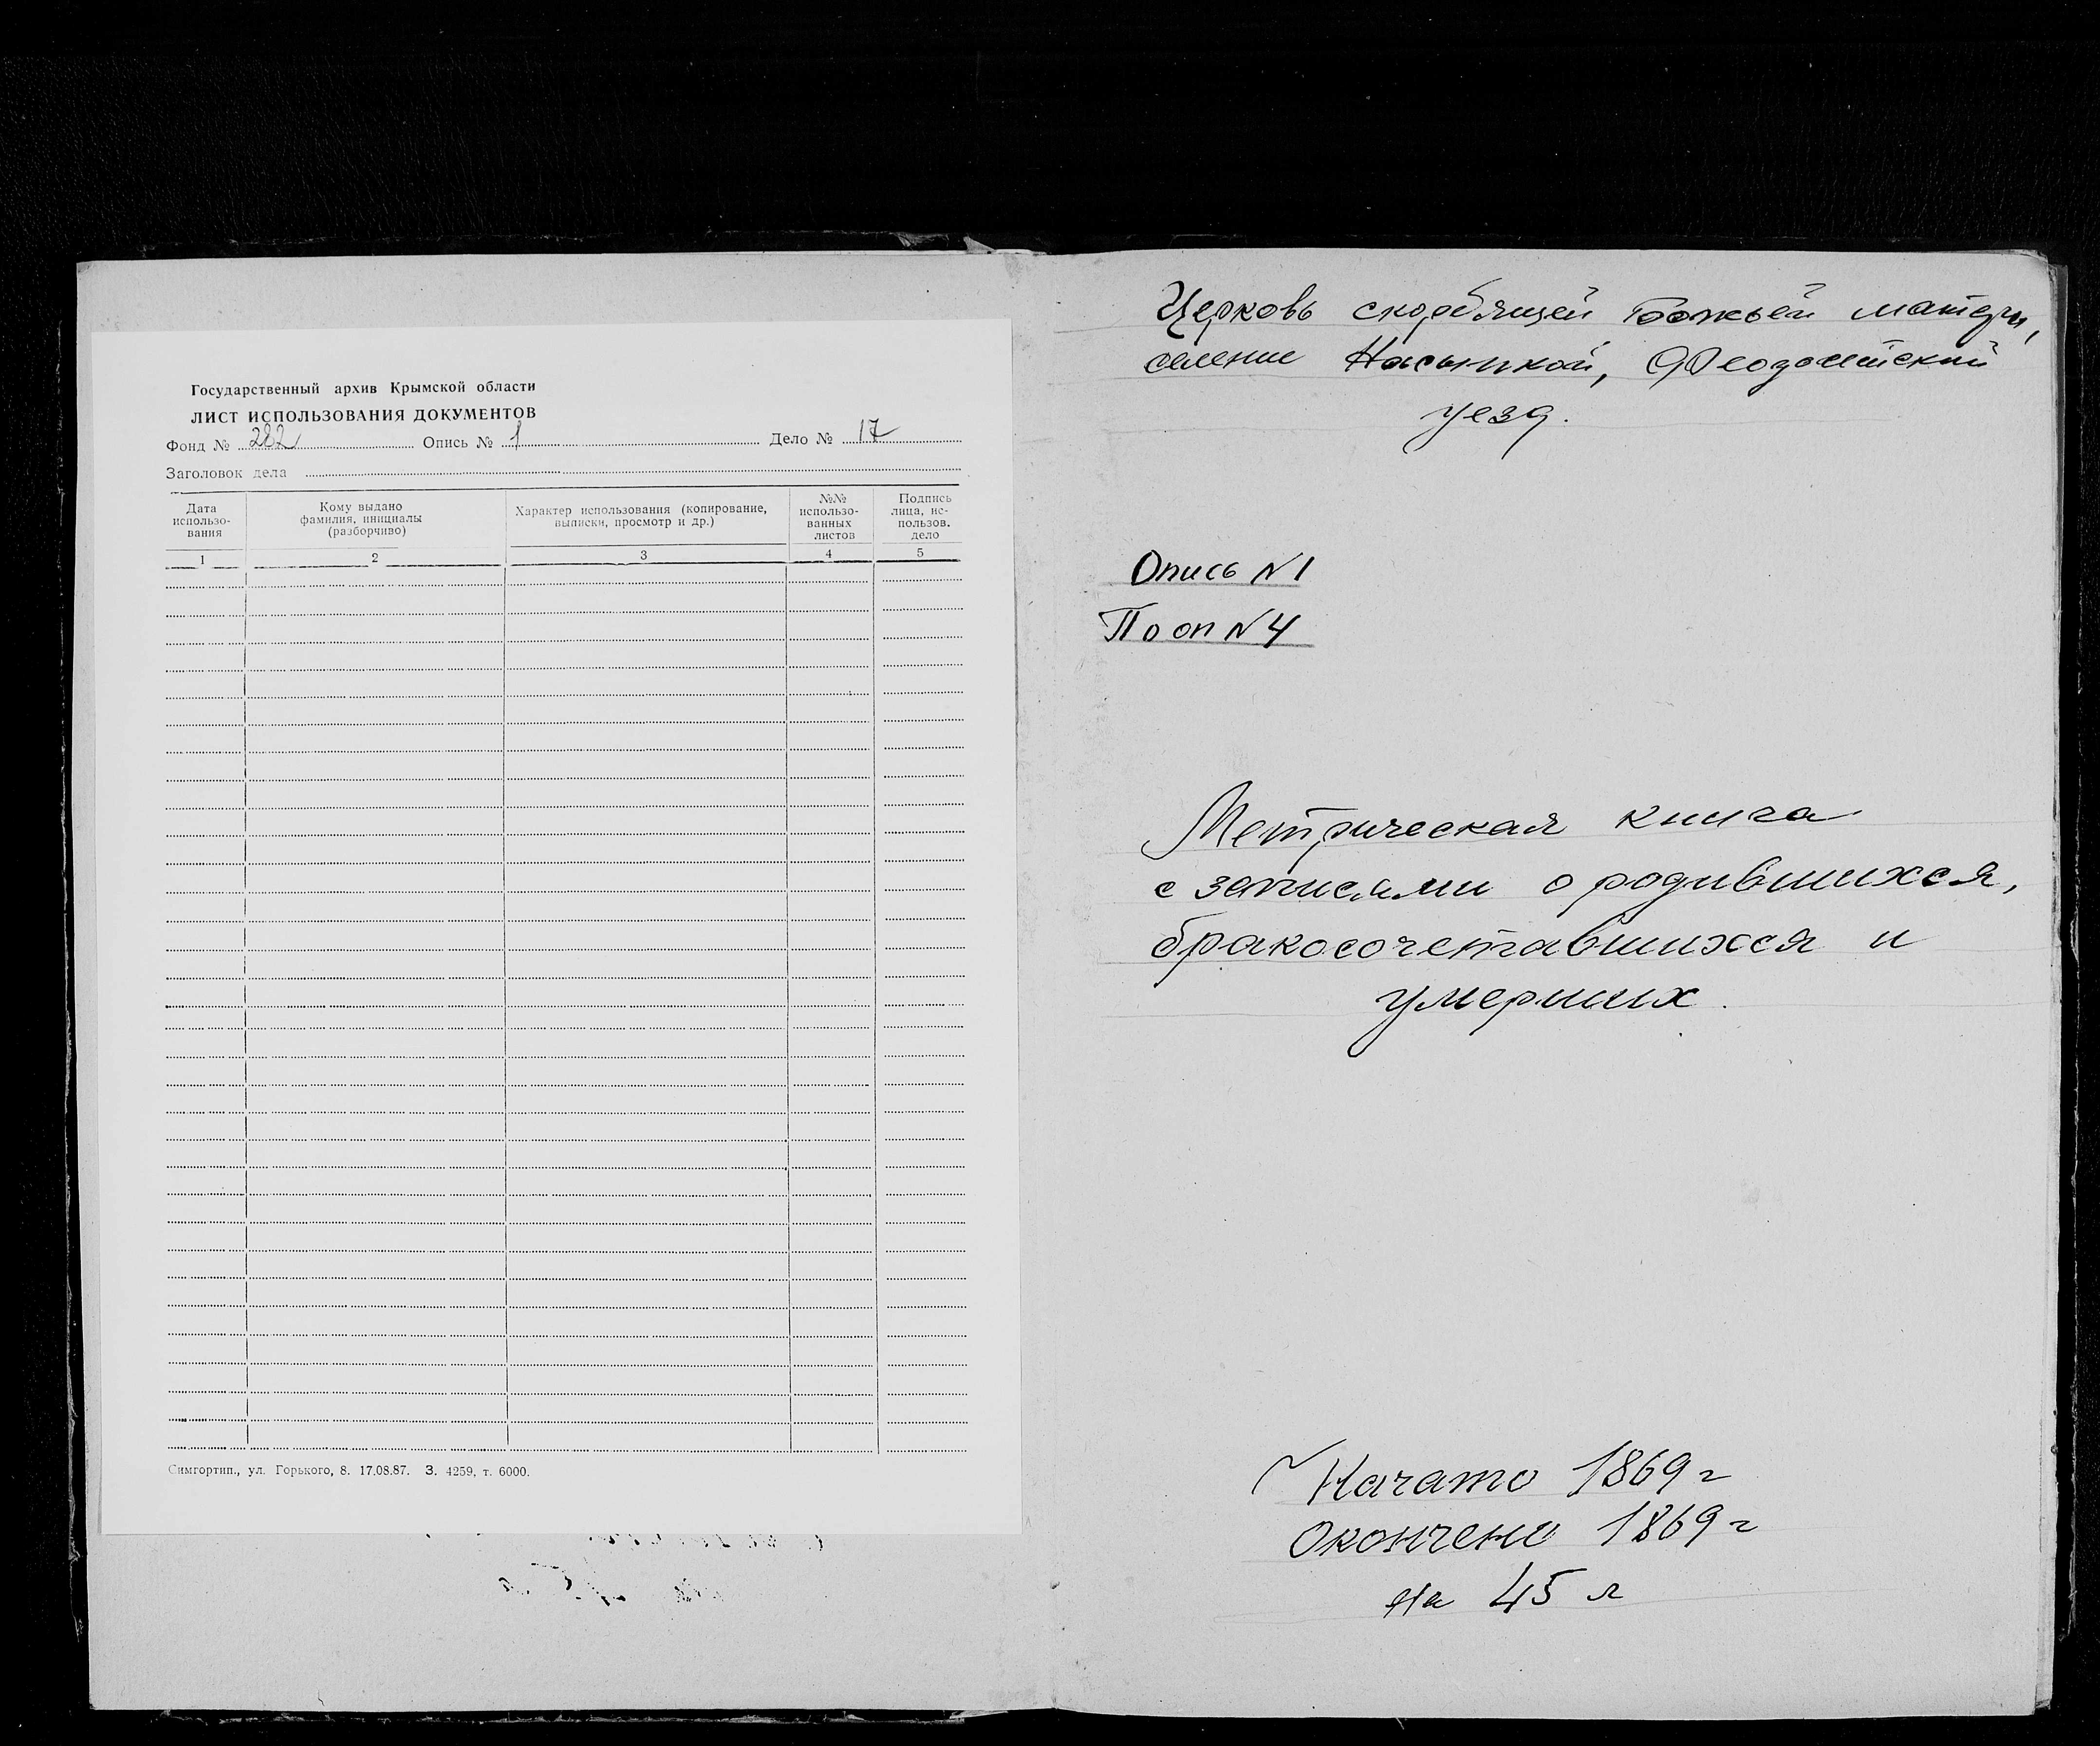 Государственный архив Крымской области
ЛИСТ ИСПОЛЬЗОВАНИЯ ДОКУМЕНТОВ
Фонд № 282 Опись № 1 Дело № 17
Заголовок дела
Дата использо-вания
Кому выдано фамилия, инициалы (разборчиво)
Характер использования (копирование, выписки, просмотр и др.)
№№ использо-ванных листов
Подпись лица, ис-пользов. дело
1 2 3 4 5
Симгортип., ул. Горького, 8. 17.08.87. З. 4259, т. 6000.
Церковь скорбящей Божьей матери,
селение Насыпкой, Феодосийский
уезд.
Опись N1
По оп N4
Метрическая книга
с записями о родившихся,
бракосочетавшихся и
умерших.
Начато 1869 г
Окончено 1869 г
на 45 л